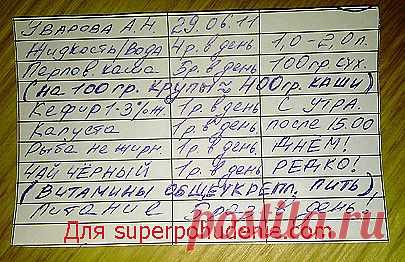 УВАРОВА А.Н. 29.06.11
Жидкость/вода 4р. в день 1,0-2,0л.
Перлов. каша 5р. в день 100гр сух.
(на 100гр. крупы ≈ 400гр. каши)
Кефир 1-3% ж. 1р. в день с утра.
Капуста 1р. в день после 15.00
Рыба не жирн. 1р. в день ДНЁМ!
ЧАЙ ЧЁРНЫЙ 1р. в день РЕДКО!
(Витамины общеукрепл. пить)
Питание день!
Для superpohudenie.com
postila.ru